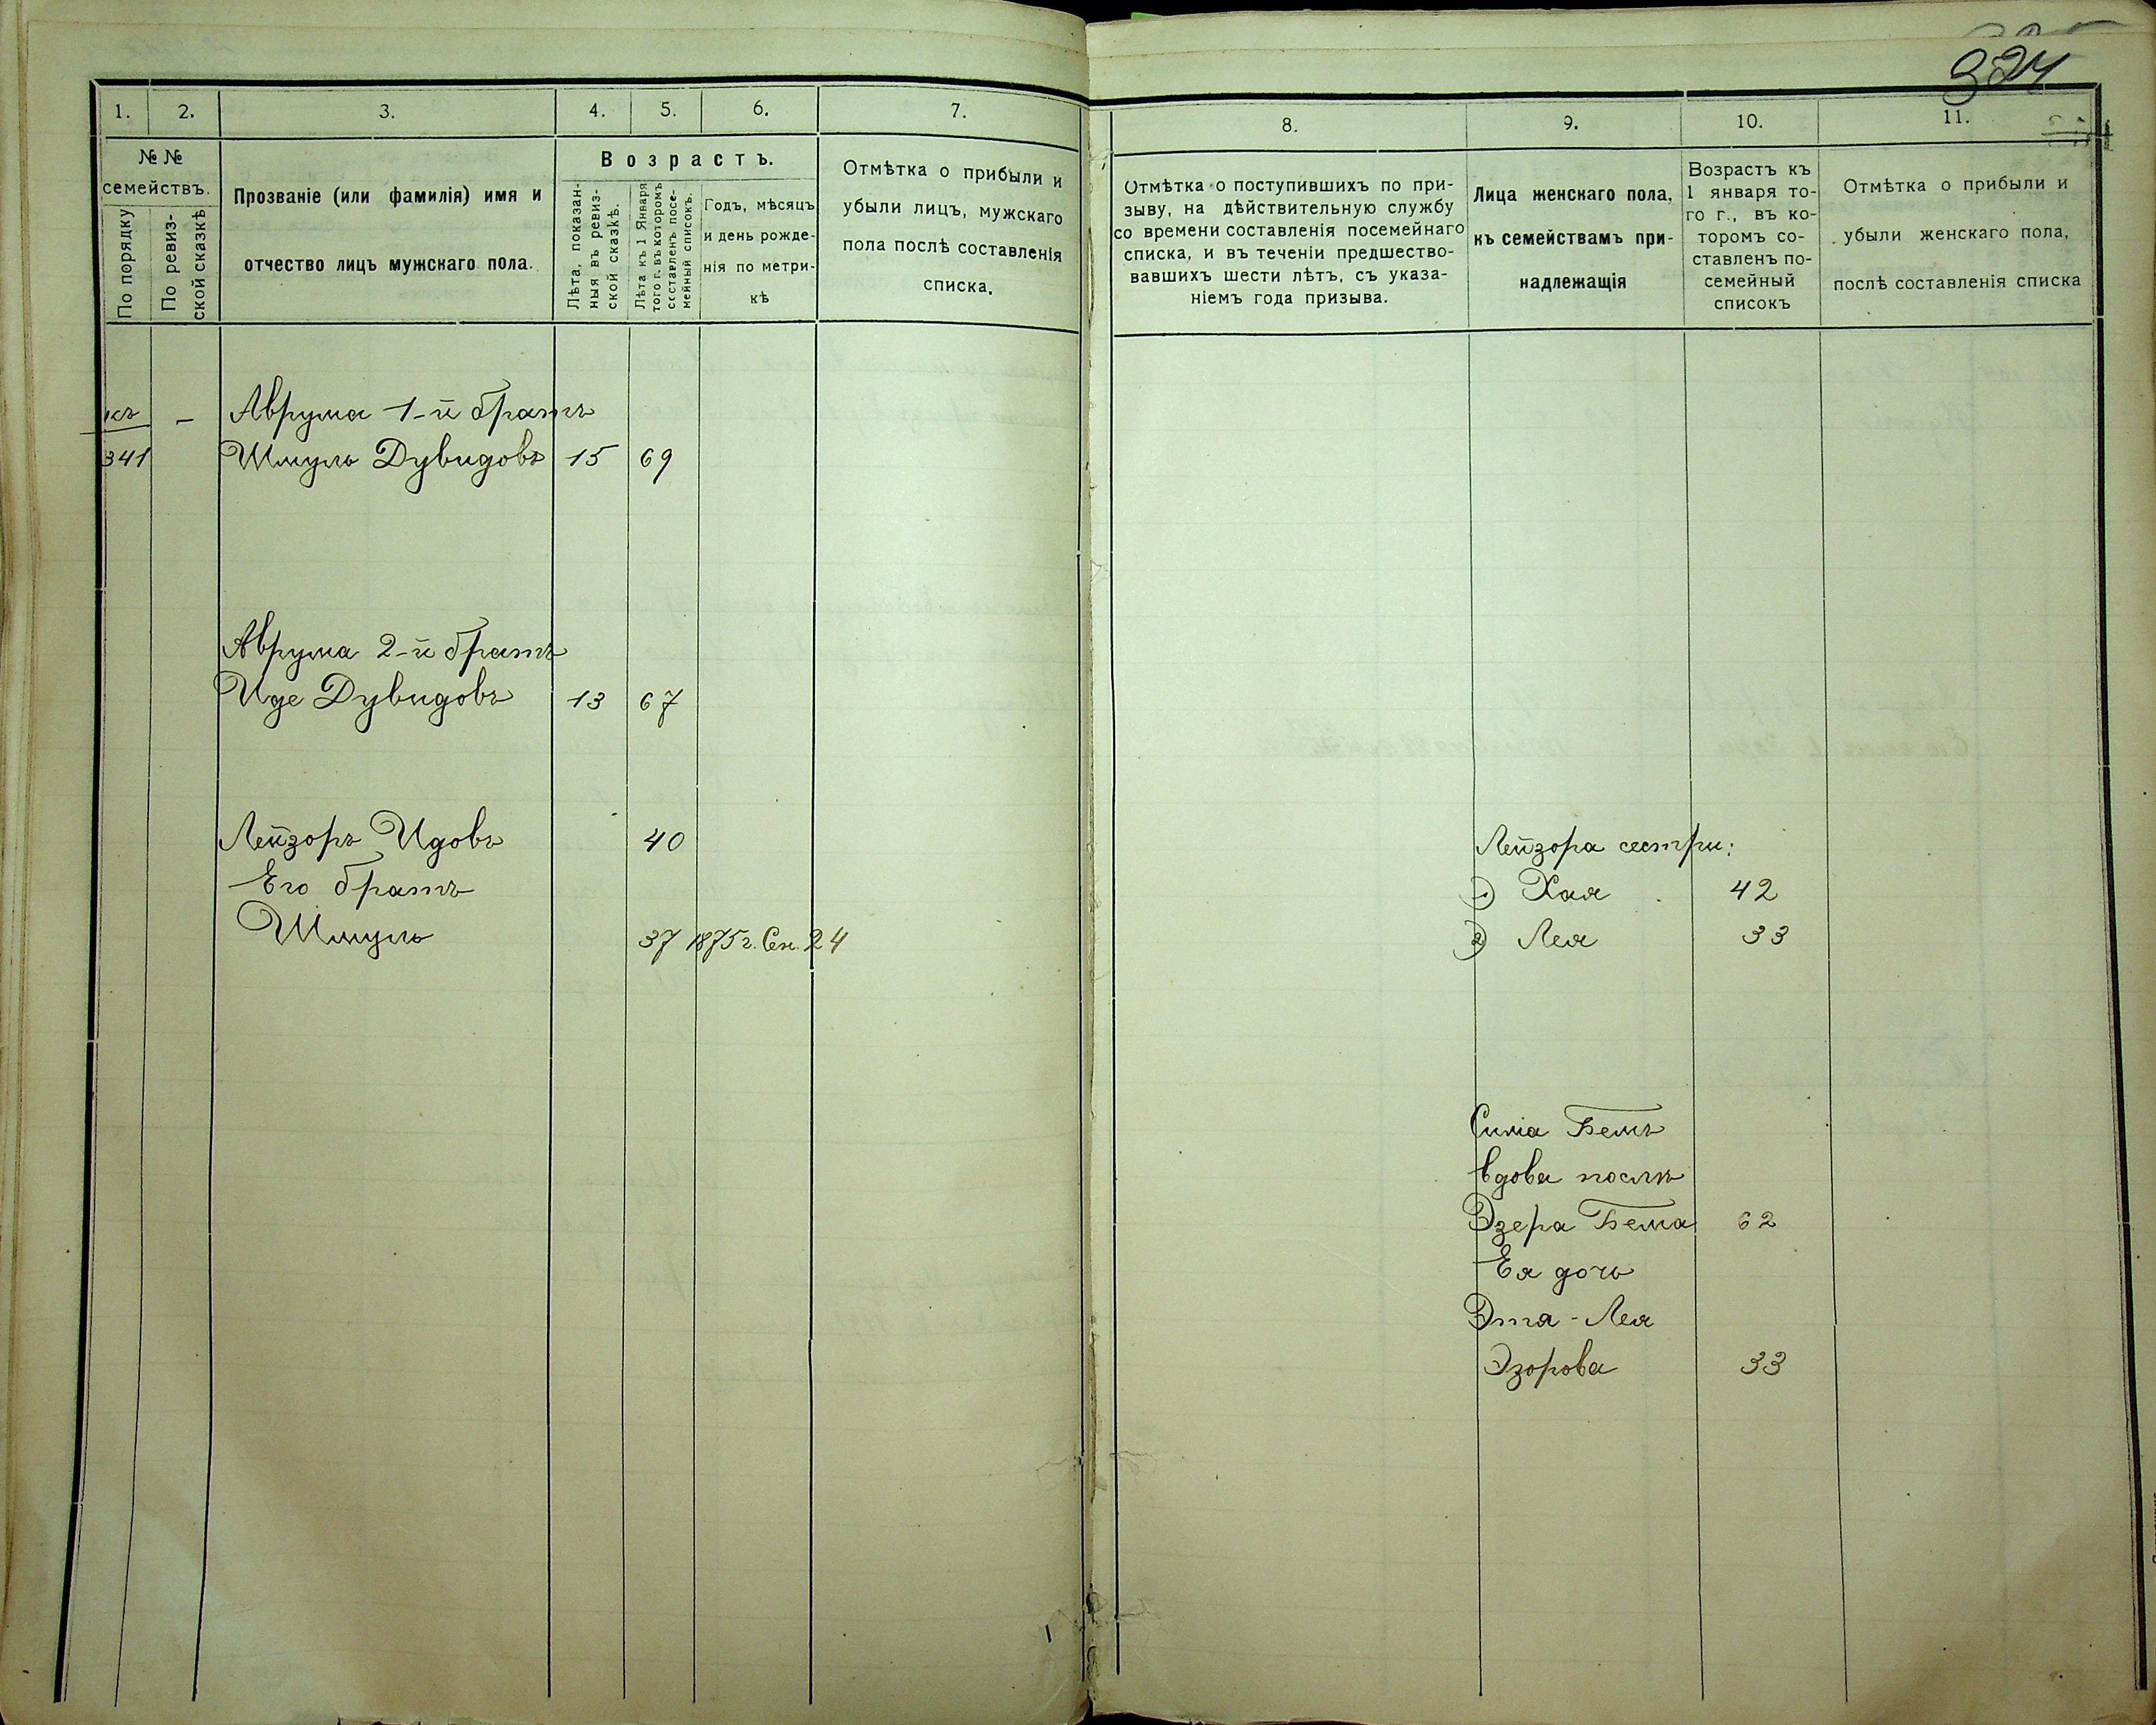 324
1. 2. 3. 4. 5. 6. 7.
№ №
семействъ.
По порядку
По ревиз-
ской сказкѣ
Прозваніе (или фамилія) имя и
отчество лицъ мужскаго пола.
Возрастъ.
Лѣта, показан-
ныя въ ревиз-
ской сказкѣ.
Лѣта къ 1 Января
того г. въ которомъ
составленъ посе-
мейный списокъ.
Годъ, мѣсяцъ
и день рожде-
нія по метри-
кѣ
Отмѣтка о прибыли и
убыли лицъ, мужскаго
пола послѣ составленія
списка.
къ — Аврума 1-й братъ
341 Шмуль Дувидовъ 15 69
Аврума 2-й братъ
Иде Дувидовъ 13 67
Лейзоръ Идовъ 40
Его братъ
Шмуль 37 1875 г. Сен. 24
8. 9. 10. 11.
Отмѣтка о поступившихъ по при-
зыву, на дѣйствительную службу
со времени составленія посемейнаго
списка, и въ теченіи предшество-
вавшихъ шести лѣтъ, съ указа-
ніемъ года призыва.
Лица женскаго пола,
къ семействамъ при-
надлежащія
Возрастъ къ
1 января то-
го г., въ ко-
торомъ со-
ставленъ по-
семейный
списокъ
Отмѣтка о прибыли и
убыли женскаго пола,
послѣ составленія списка
Лейзора сестры:
1) Хая 42
2) Лея 33
Сима Бемъ
вдова послѣ
Эзера Бема 62
Ея дочь
Эта-Лея
Эзорова 33